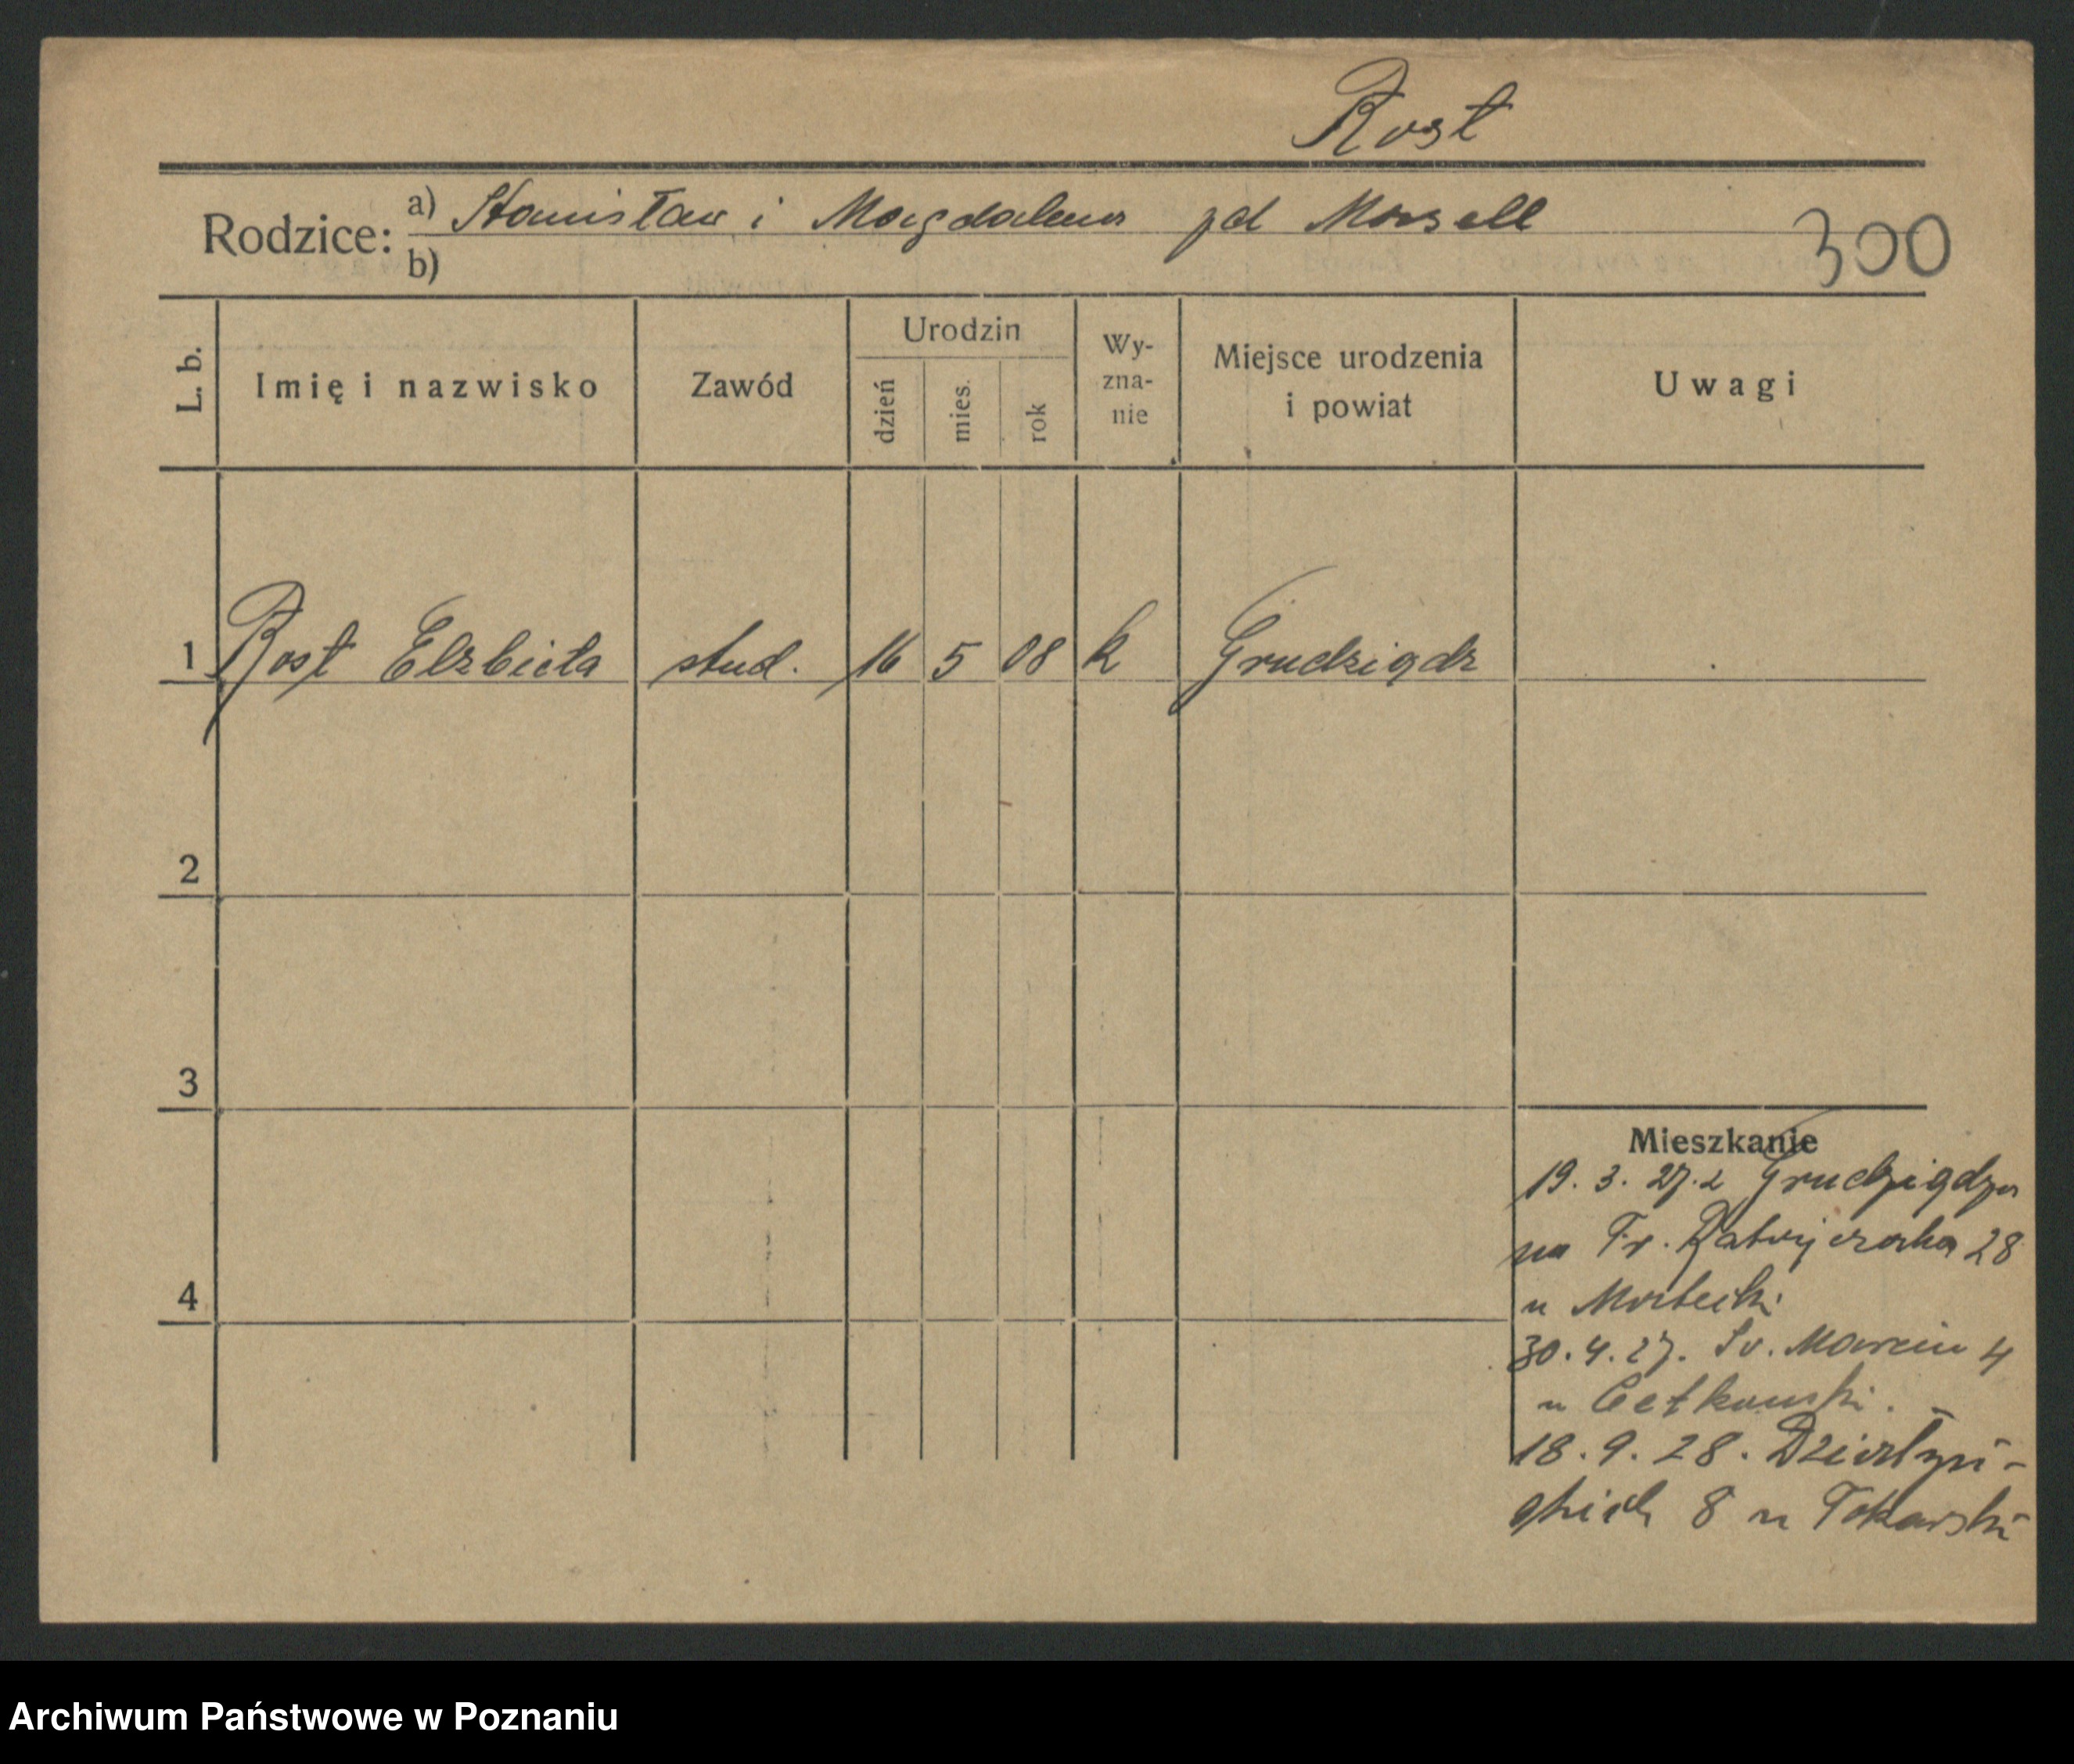 Rost
Rodzice: a) Stanisław i Magdalena zd
b)
300
L. b. Imię i nazwisko Zawód Urodzin dzień mies. rok Wy-zna-nie Miejsce urodzenia i powiat Uwagi
1 Rost Elzbieta stud. 16 5 08 k Grudziądz
2
3
Mieszkanie
19. 3. 27. z Grudziądza
na Fr. Ratajczaka 28
4
u
30. 4. 27. Św. Marcin 4
u Cetkowski.
18. 9. 28.
8 u Tokarski
Archiwum Państwowe w Poznaniu